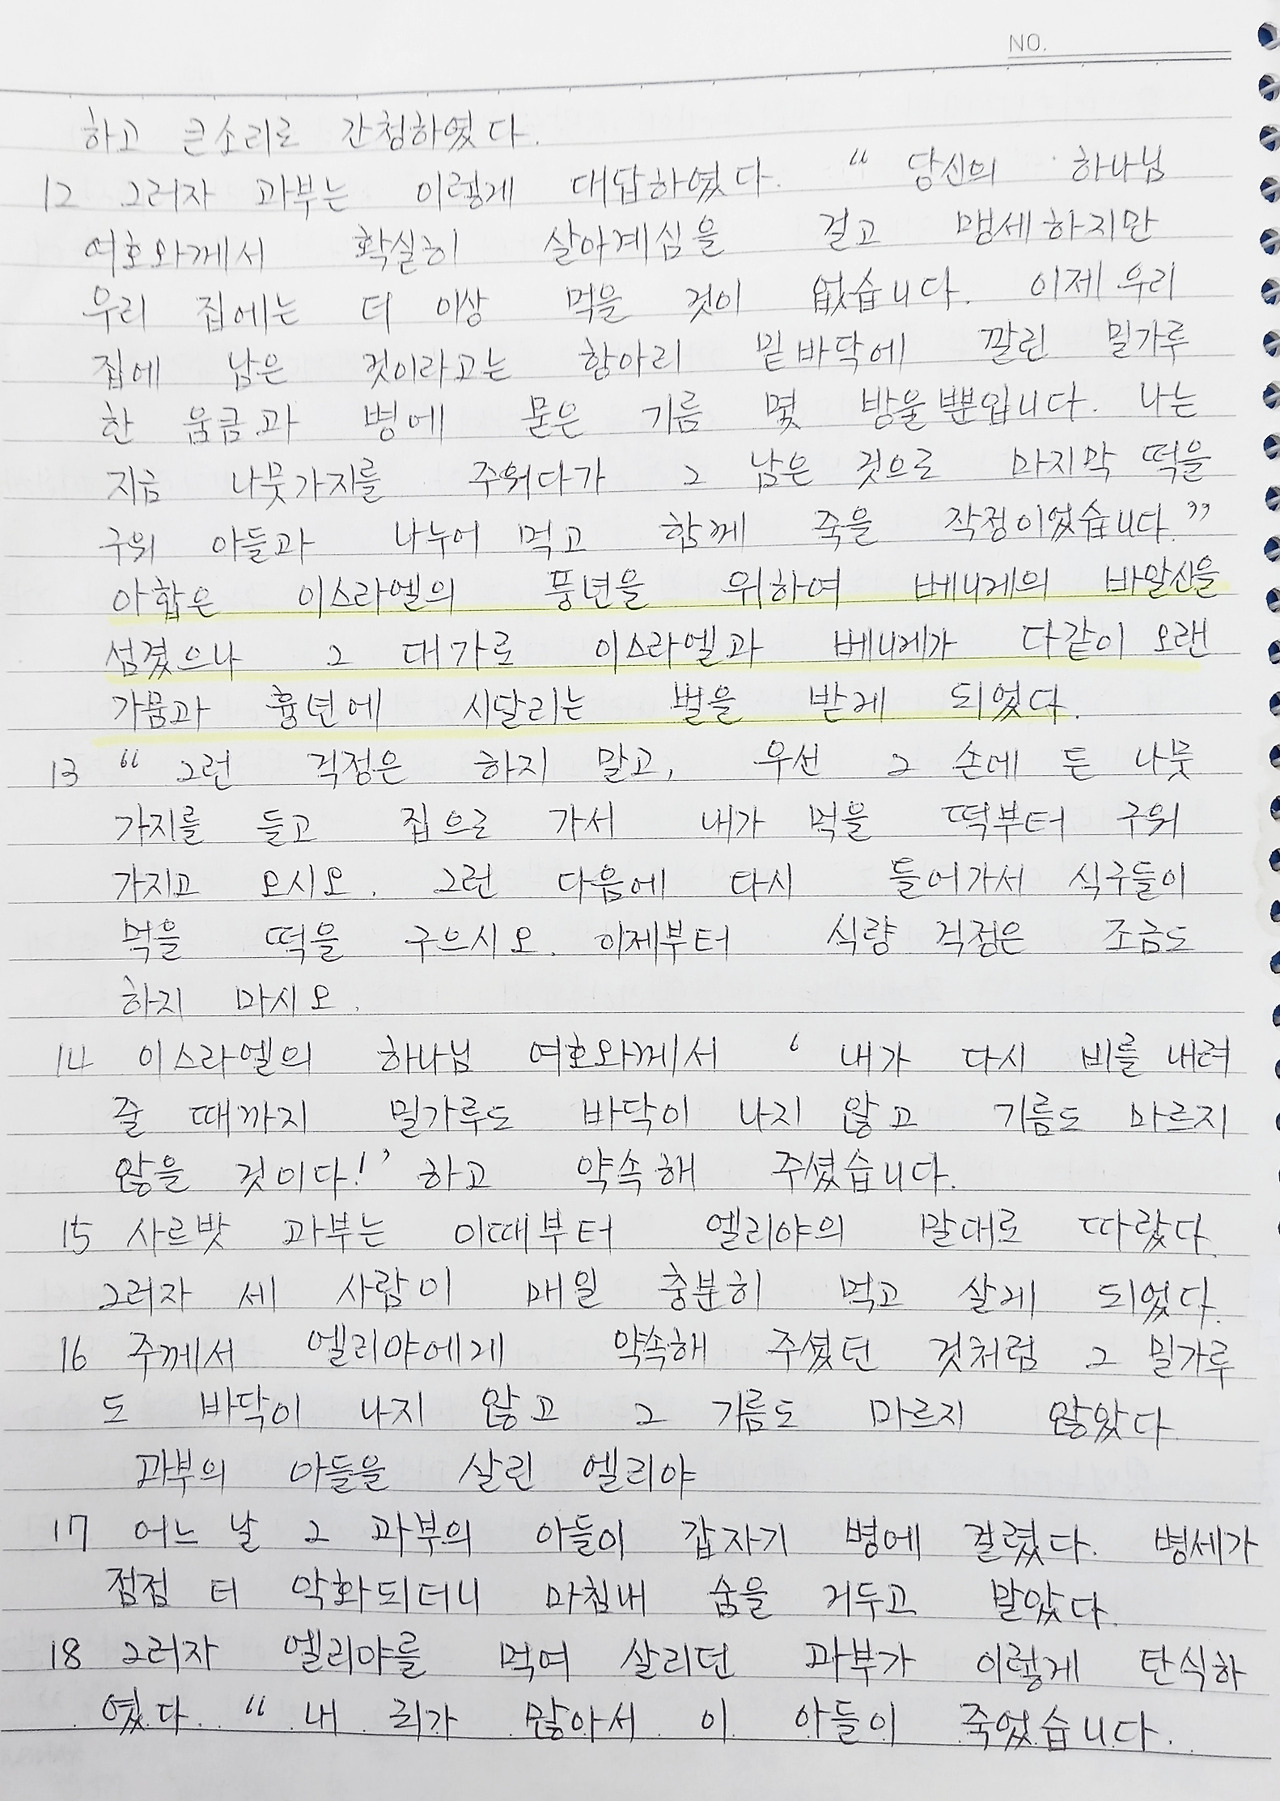 NO.
하고 큰소리로 간청하였다.
12 그러자 과부는 이렇게 대답하였다. “ 당신의 하나님
여호와께서 확실히 살아계심을 걸고 맹세하지만
우리 집에는 더 이상 먹을 것이 없습니다. 이제 우리
집에 남은 것이라고는 항아리 밑바닥에 깔린 밀가루
한 움큼과 병에 묻은 기름 몇 방울뿐입니다. 나는
지금 나뭇가지를 주워다가 그 남은 것으로 마지막 떡을
구워 아들과 나누어 먹고 함께 죽을 작정이었습니다.”
아합은 이스라엘의 풍년을 위하여 베니게의 바알신을
섬겼으나 그 대가로 이스라엘과 베니게가 다같이 오랜
가뭄과 흉년에 시달리는 벌을 받게 되었다.
13 “ 그런 걱정은 하지 말고, 우선 그 손에 든 나뭇
가지를 들고 집으로 가서 내가 먹을 떡부터 구워
가지고 오시오. 그런 다음에 다시 들어가서 식구들이
먹을 떡을 구으시오. 이제부터 식량 걱정은 조금도
하지 마시오.
14 이스라엘의 하나님 여호와께서 ‘ 내가 다시 비를 내려
줄 때까지 밀가루도 바닥이 나지 않고 기름도 마르지
않을 것이다!’ 하고 약속해 주셨습니다.
15 사르밧 과부는 이때부터 엘리야의 말대로 따랐다.
그러자 세 사람이 매일 충분히 먹고 살게 되었다.
16 주께서 엘리야에게 약속해 주셨던 것처럼 그 밀가루
도 바닥이 나지 않고 그 기름도 마르지 않았다.
과부의 아들을 살린 엘리야
17 어느 날 그 과부의 아들이 갑자기 병에 걸렸다. 병세가
점점 더 악화되더니 마침내 숨을 거두고 말았다.
18 그러자 엘리야를 먹여 살리던 과부가 이렇게 탄식하
였다. “ 내 죄가 많아서 이 아들이 죽었습니다.